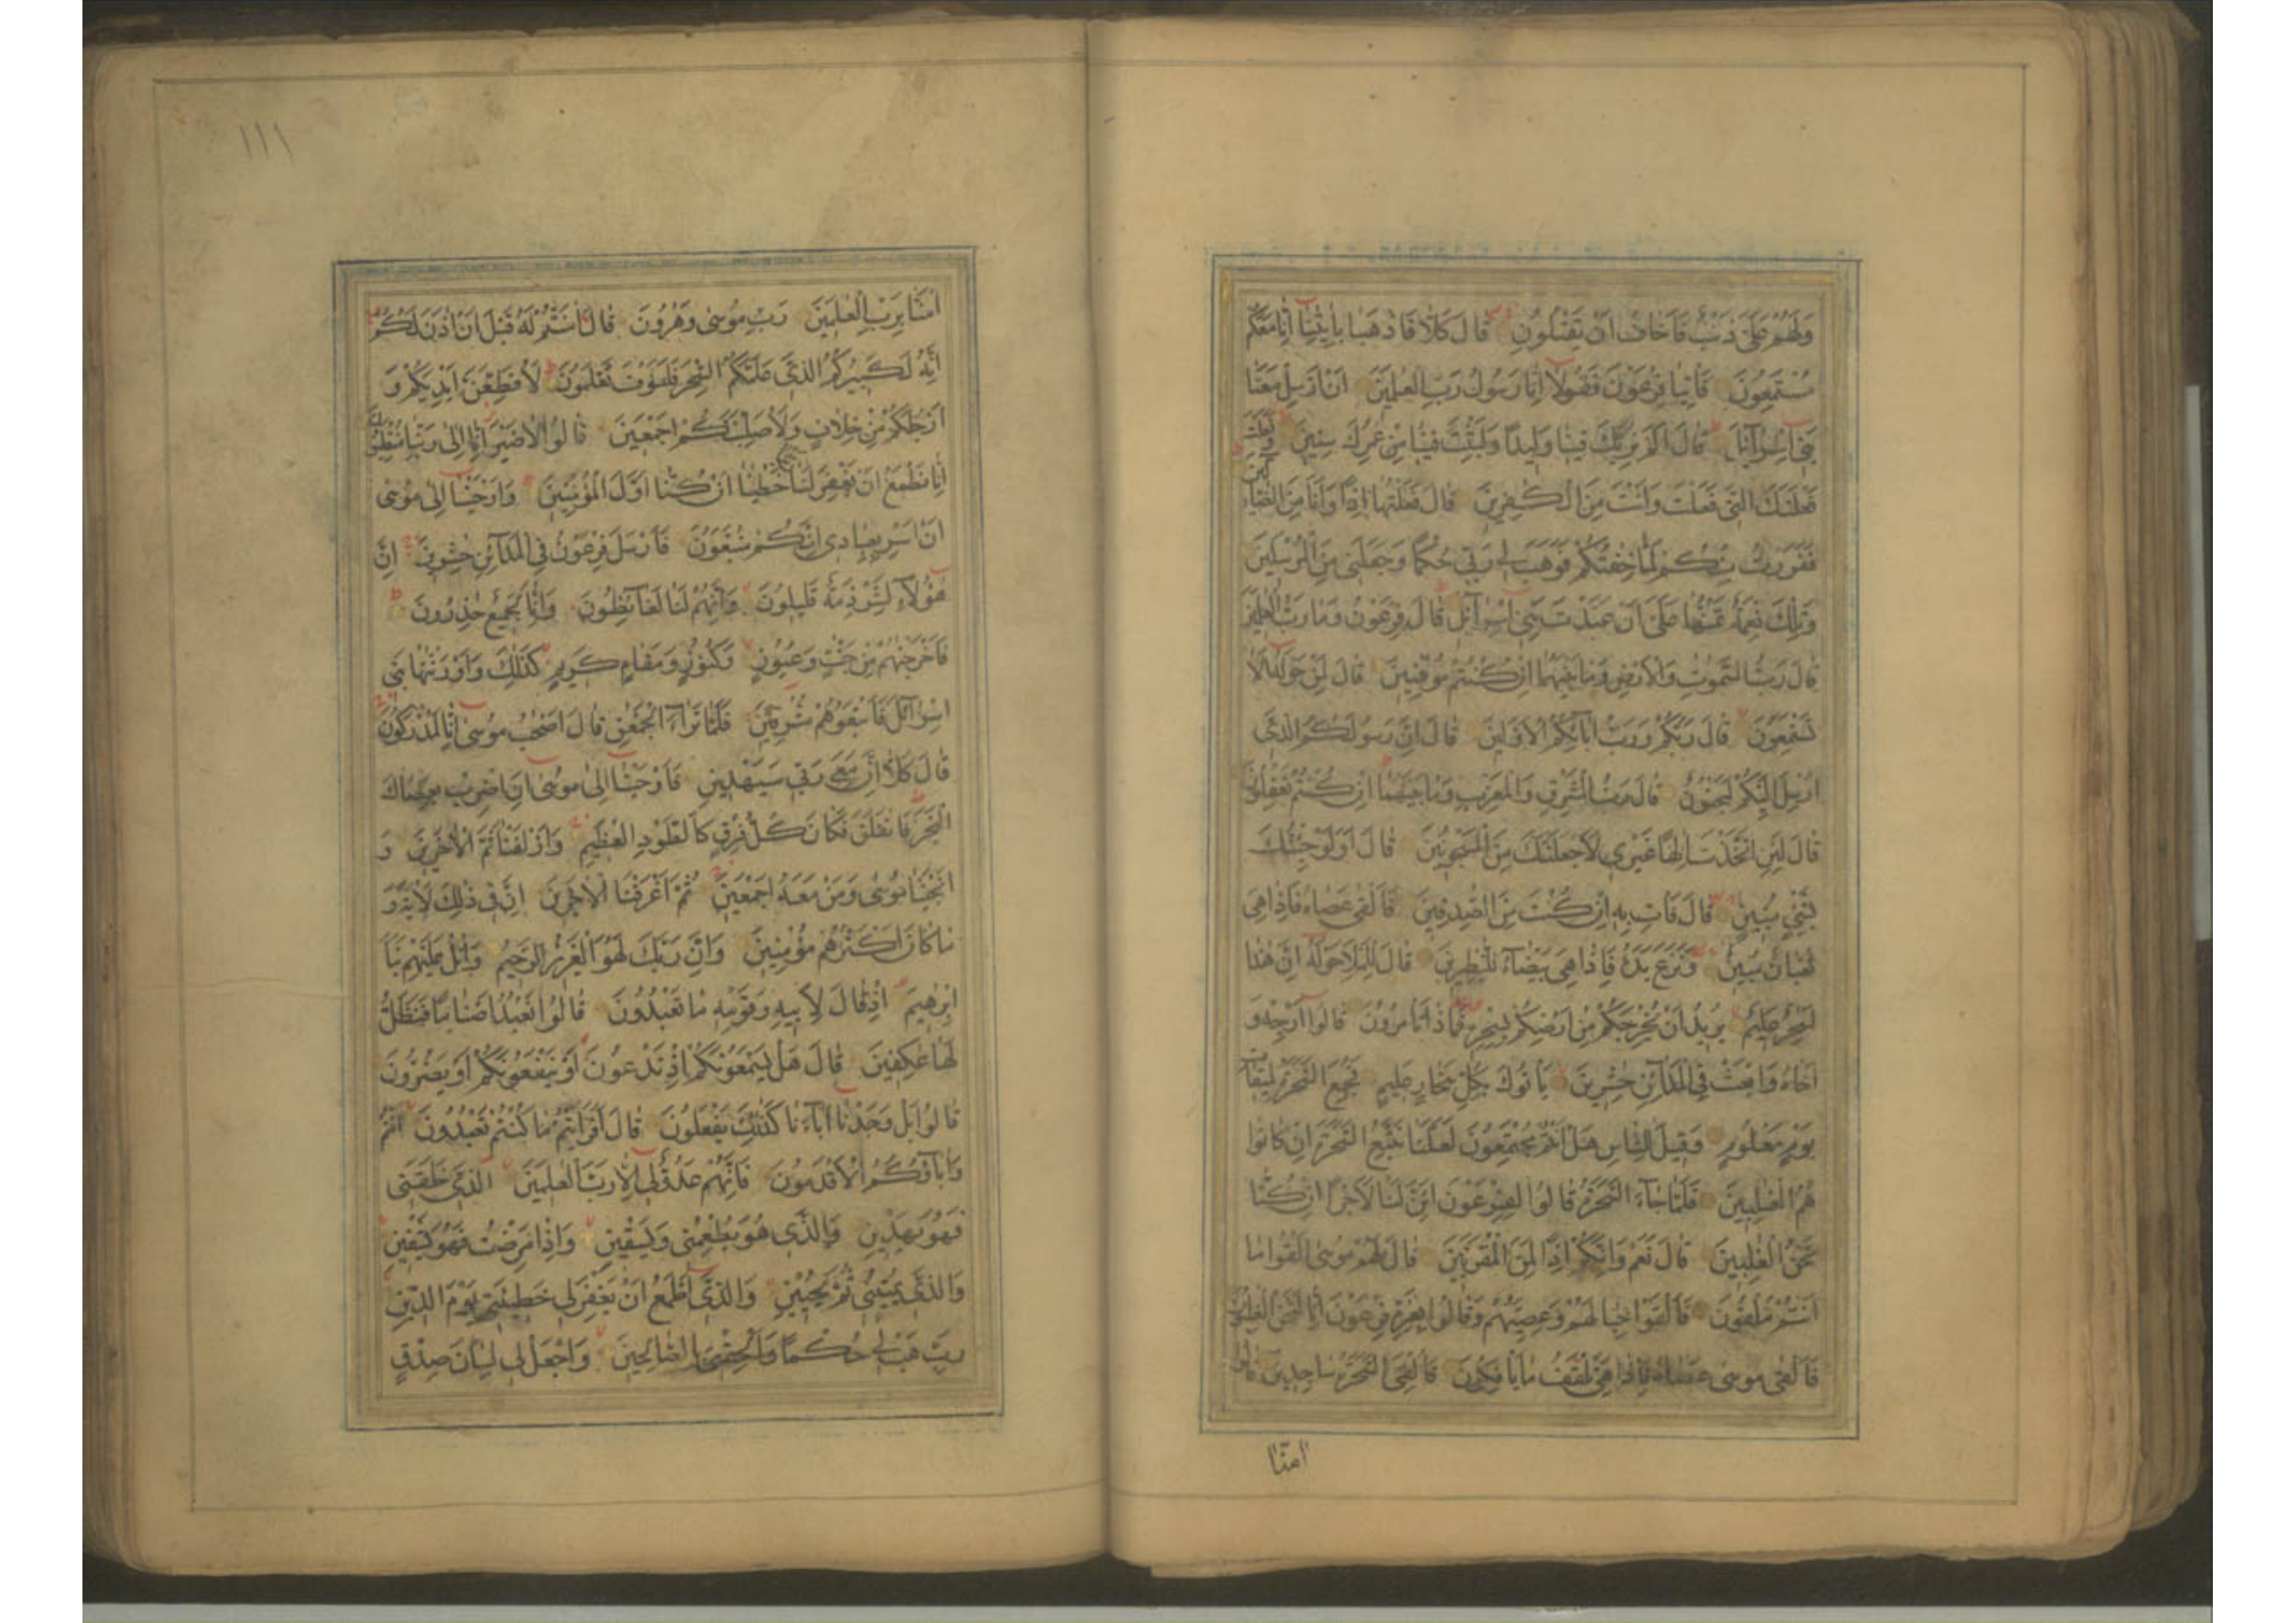 وَلَهُمْ عَلَىَّ ذَنْبٌ فَاَخَافُ اَنْ يَقْتُلُونِ قَالَ كَلَّا فَاذْهَبَا بِاٰيٰتِنَا اِنَّا مَعَكُمْ
مُسْتَمِعُونَ فَأْتِيَا فِرْعَوْنَ فَقُولَا اِنَّا رَسُولُ رَبِّ الْعٰلَمِينَ اَنْ اَرْسِلْ مَعَنَا
بَنِي اِسْرَآئِيلَ قَالَ اَلَمْ نُرَبِّكَ فِينَا وَلِيدًا وَلَبِثْتَ فِينَا مِنْ عُمُرِكَ سِنِينَ وَفَعَلْتَ
فَعْلَتَكَ الَّتِي فَعَلْتَ وَاَنْتَ مِنَ الْكٰفِرِينَ قَالَ فَعَلْتُهَا اِذًا وَاَنَا مِنَ الضَّآلِّينَ
فَفَرَرْتُ مِنْكُمْ لَمَّا خِفْتُكُمْ فَوَهَبَ لِي رَبِّي حُكْمًا وَجَعَلَنِي مِنَ الْمُرْسَلِينَ
وَتِلْكَ نِعْمَةٌ تَمُنُّهَا عَلَىَّ اَنْ عَبَّدْتَ بَنِي اِسْرَآئِلَ قَالَ فِرْعَوْنُ وَمَا رَبُّ الْعٰلَمِينَ
قَالَ رَبُّ السَّمٰوٰتِ وَالْاَرْضِ وَمَا بَيْنَهُمَا اِنْ كُنْتُمْ مُوقِنِينَ قَالَ لِمَنْ حَوْلَهُ اَلَا
تَسْتَمِعُونَ قَالَ رَبُّكُمْ وَرَبُّ اٰبَآئِكُمُ الْاَوَّلِينَ قَالَ اِنَّ رَسُولَكُمُ الَّذِي
اُرْسِلَ اِلَيْكُمْ لَمَجْنُونٌ قَالَ رَبُّ الْمَشْرِقِ وَالْمَغْرِبِ وَمَا بَيْنَهُمَا اِنْ كُنْتُمْ تَعْقِلُونَ
قَالَ لَئِنِ اتَّخَذْتَ اِلٰهًا غَيْرِي لَاَجْعَلَنَّكَ مِنَ الْمَسْجُونِينَ قَالَ اَوَلَوْ جِئْتُكَ
بِشَيْءٍ مُبِينٍ قَالَ فَأْتِ بِهِ اِنْ كُنْتَ مِنَ الصّٰدِقِينَ فَاَلْقٰى عَصَاهُ فَاِذَا هِيَ
ثُعْبَانٌ مُبِينٌ وَنَزَعَ يَدَهُ فَاِذَا هِيَ بَيْضَآءُ لِلنّٰظِرِينَ قَالَ لِلْمَلَاِ حَوْلَهُ اِنَّ هٰذَا
لَسٰحِرٌ عَلِيمٌ يُرِيدُ اَنْ يُخْرِجَكُمْ مِنْ اَرْضِكُمْ بِسِحْرِهِ فَمَاذَا تَأْمُرُونَ قَالُوا اَرْجِهْ وَ
اَخَاهُ وَابْعَثْ فِي الْمَدَآئِنِ حٰشِرِينَ يَأْتُوكَ بِكُلِّ سَحَّارٍ عَلِيمٍ فَجُمِعَ السَّحَرَةُ لِمِيقَاتِ
يَوْمٍ مَعْلُومٍ وَقِيلَ لِلنَّاسِ هَلْ اَنْتُمْ مُجْتَمِعُونَ لَعَلَّنَا نَتَّبِعُ السَّحَرَةَ اِنْ كَانُوا
هُمُ الْغٰلِبِينَ فَلَمَّا جَآءَ السَّحَرَةُ قَالُوا لِفِرْعَوْنَ اَئِنَّ لَنَا لَاَجْرًا اِنْ كُنَّا
نَحْنُ الْغٰلِبِينَ قَالَ نَعَمْ وَاِنَّكُمْ اِذًا لَمِنَ الْمُقَرَّبِينَ قَالَ لَهُمْ مُوسٰى اَلْقُوا مَا
اَنْتُمْ مُلْقُونَ فَاَلْقَوْا حِبَالَهُمْ وَعِصِيَّهُمْ وَقَالُوا بِعِزَّةِ فِرْعَوْنَ اِنَّا لَنَحْنُ الْغٰلِبُونَ
فَاَلْقٰى مُوسٰى عَصَاهُ فَاِذَا هِيَ تَلْقَفُ مَا يَأْفِكُونَ فَاُلْقِيَ السَّحَرَةُ سَاجِدِينَ قَالُوا
اٰمَنَّا
١١١
اٰمَنَّا بِرَبِّ الْعٰلَمِينَ رَبِّ مُوسٰى وَهٰرُونَ قَالَ اٰمَنْتُمْ لَهُ قَبْلَ اَنْ اٰذَنَ لَكُمْ
اِنَّهُ لَكَبِيرُكُمُ الَّذِي عَلَّمَكُمُ السِّحْرَ فَلَسَوْفَ تَعْلَمُونَ لَاُقَطِّعَنَّ اَيْدِيَكُمْ وَ
اَرْجُلَكُمْ مِنْ خِلَافٍ وَلَاُصَلِّبَنَّكُمْ اَجْمَعِينَ قَالُوا لَا ضَيْرَ اِنَّا اِلٰى رَبِّنَا مُنْقَلِبُونَ
اِنَّا نَطْمَعُ اَنْ يَغْفِرَ لَنَا رَبُّنَا خَطٰيٰنَا اَنْ كُنَّا اَوَّلَ الْمُؤْمِنِينَ وَاَوْحَيْنَا اِلٰى مُوسٰى
اَنْ اَسْرِ بِعِبَادِي اِنَّكُمْ مُتَّبَعُونَ فَاَرْسَلَ فِرْعَوْنُ فِي الْمَدَآئِنِ حٰشِرِينَ اِنَّ
هٰؤُلَآءِ لَشِرْذِمَةٌ قَلِيلُونَ وَاِنَّهُمْ لَنَا لَغَآئِظُونَ وَاِنَّا لَجَمِيعٌ حٰذِرُونَ
فَاَخْرَجْنٰهُمْ مِنْ جَنّٰتٍ وَعُيُونٍ وَكُنُوزٍ وَمَقَامٍ كَرِيمٍ كَذٰلِكَ وَاَوْرَثْنٰهَا بَنِي
اِسْرَآئِلَ فَاَتْبَعُوهُمْ مُشْرِقِينَ فَلَمَّا تَرَآءَ الْجَمْعٰنِ قَالَ اَصْحٰبُ مُوسٰى اِنَّا لَمُدْرَكُونَ
قَالَ كَلَّا اِنَّ مَعِيَ رَبِّي سَيَهْدِينِ فَاَوْحَيْنَا اِلٰى مُوسٰى اَنِ اضْرِبْ بِعَصَاكَ
الْبَحْرَ فَانْفَلَقَ فَكَانَ كُلُّ فِرْقٍ كَالطَّوْدِ الْعَظِيمِ وَاَزْلَفْنَا ثَمَّ الْاٰخَرِينَ وَ
اَنْجَيْنَا مُوسٰى وَمَنْ مَعَهُ اَجْمَعِينَ ثُمَّ اَغْرَقْنَا الْاٰخَرِينَ اِنَّ فِي ذٰلِكَ لَاٰيَةً وَ
مَا كَانَ اَكْثَرُهُمْ مُؤْمِنِينَ وَاِنَّ رَبَّكَ لَهُوَ الْعَزِيزُ الرَّحِيمُ وَاتْلُ عَلَيْهِمْ نَبَاَ
اِبْرٰهِيمَ اِذْ قَالَ لِاَبِيهِ وَقَوْمِهِ مَا تَعْبُدُونَ قَالُوا نَعْبُدُ اَصْنَامًا فَنَظَلُّ
لَهَا عٰكِفِينَ قَالَ هَلْ يَسْمَعُونَكُمْ اِذْ تَدْعُونَ اَوْ يَنْفَعُونَكُمْ اَوْ يَضُرُّونَ
قَالُوا بَلْ وَجَدْنَا اٰبَآءَنَا كَذٰلِكَ يَفْعَلُونَ قَالَ اَفَرَاَيْتُمْ مَا كُنْتُمْ تَعْبُدُونَ اَنْتُمْ
وَاٰبَآؤُكُمُ الْاَقْدَمُونَ فَاِنَّهُمْ عَدُوٌّ لِي اِلَّا رَبَّ الْعٰلَمِينَ الَّذِي خَلَقَنِي
فَهُوَ يَهْدِينِ وَالَّذِي هُوَ يُطْعِمُنِي وَيَسْقِينِ وَاِذَا مَرِضْتُ فَهُوَ يَشْفِينِ
وَالَّذِي يُمِيتُنِي ثُمَّ يُحْيِينِ وَالَّذِي اَطْمَعُ اَنْ يَغْفِرَ لِي خَطِيئَتِي يَوْمَ الدِّينِ
رَبِّ هَبْ لِي حُكْمًا وَاَلْحِقْنِي بِالصَّالِحِينَ وَاجْعَلْ لِي لِسَانَ صِدْقٍ